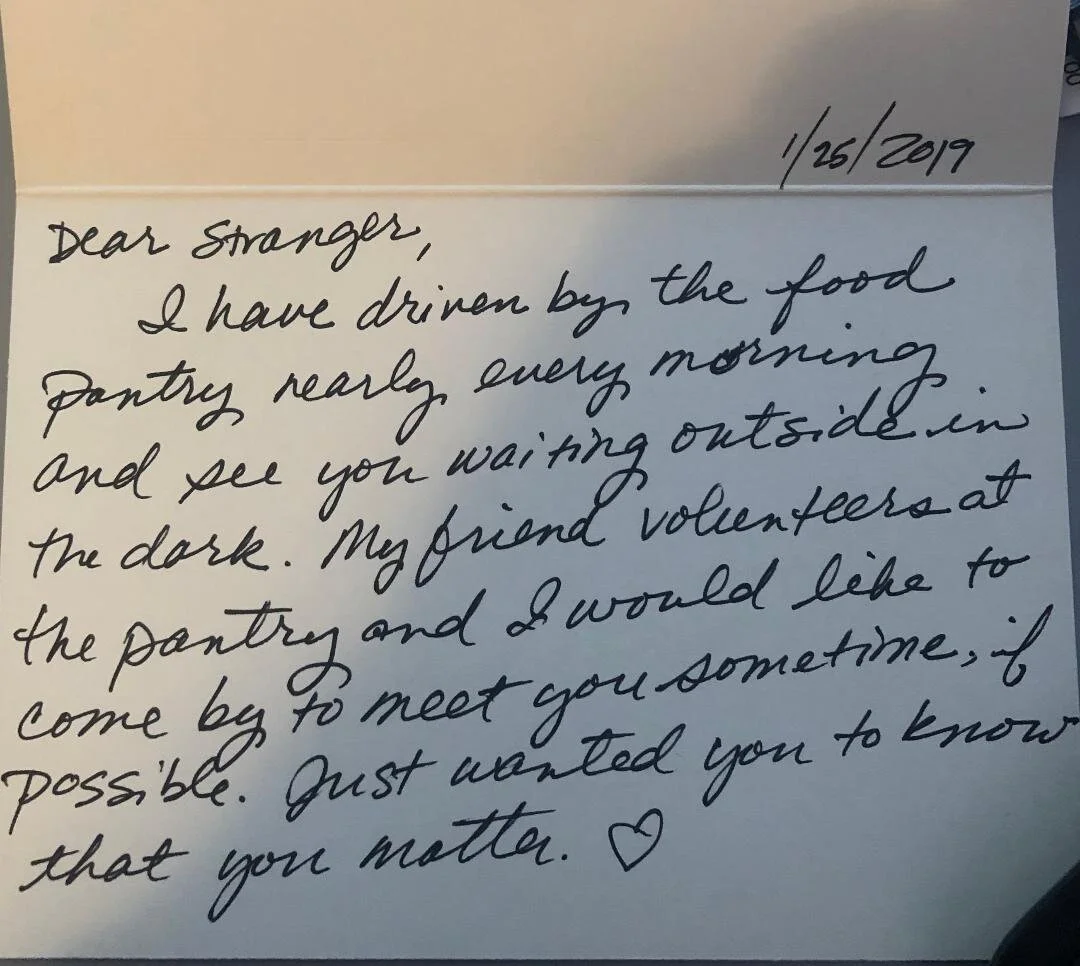 1/25/2019
Dear Stranger,
I have driven by the food
pantry nearly every morning
and see you waiting outside in
the dark. My friend volunteers at
the pantry and I would like to
come by to meet you sometime, if
possible. Just wanted you to know
that you matter. ♡